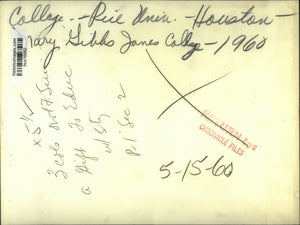 College - Rice Univ. - Houston -
Mary Gibbs Jones College - 1960
x 5 1/2
3 cols
a Gift To Educ
P 1 Sec 2
CHRONICLE FILES
5-15-60